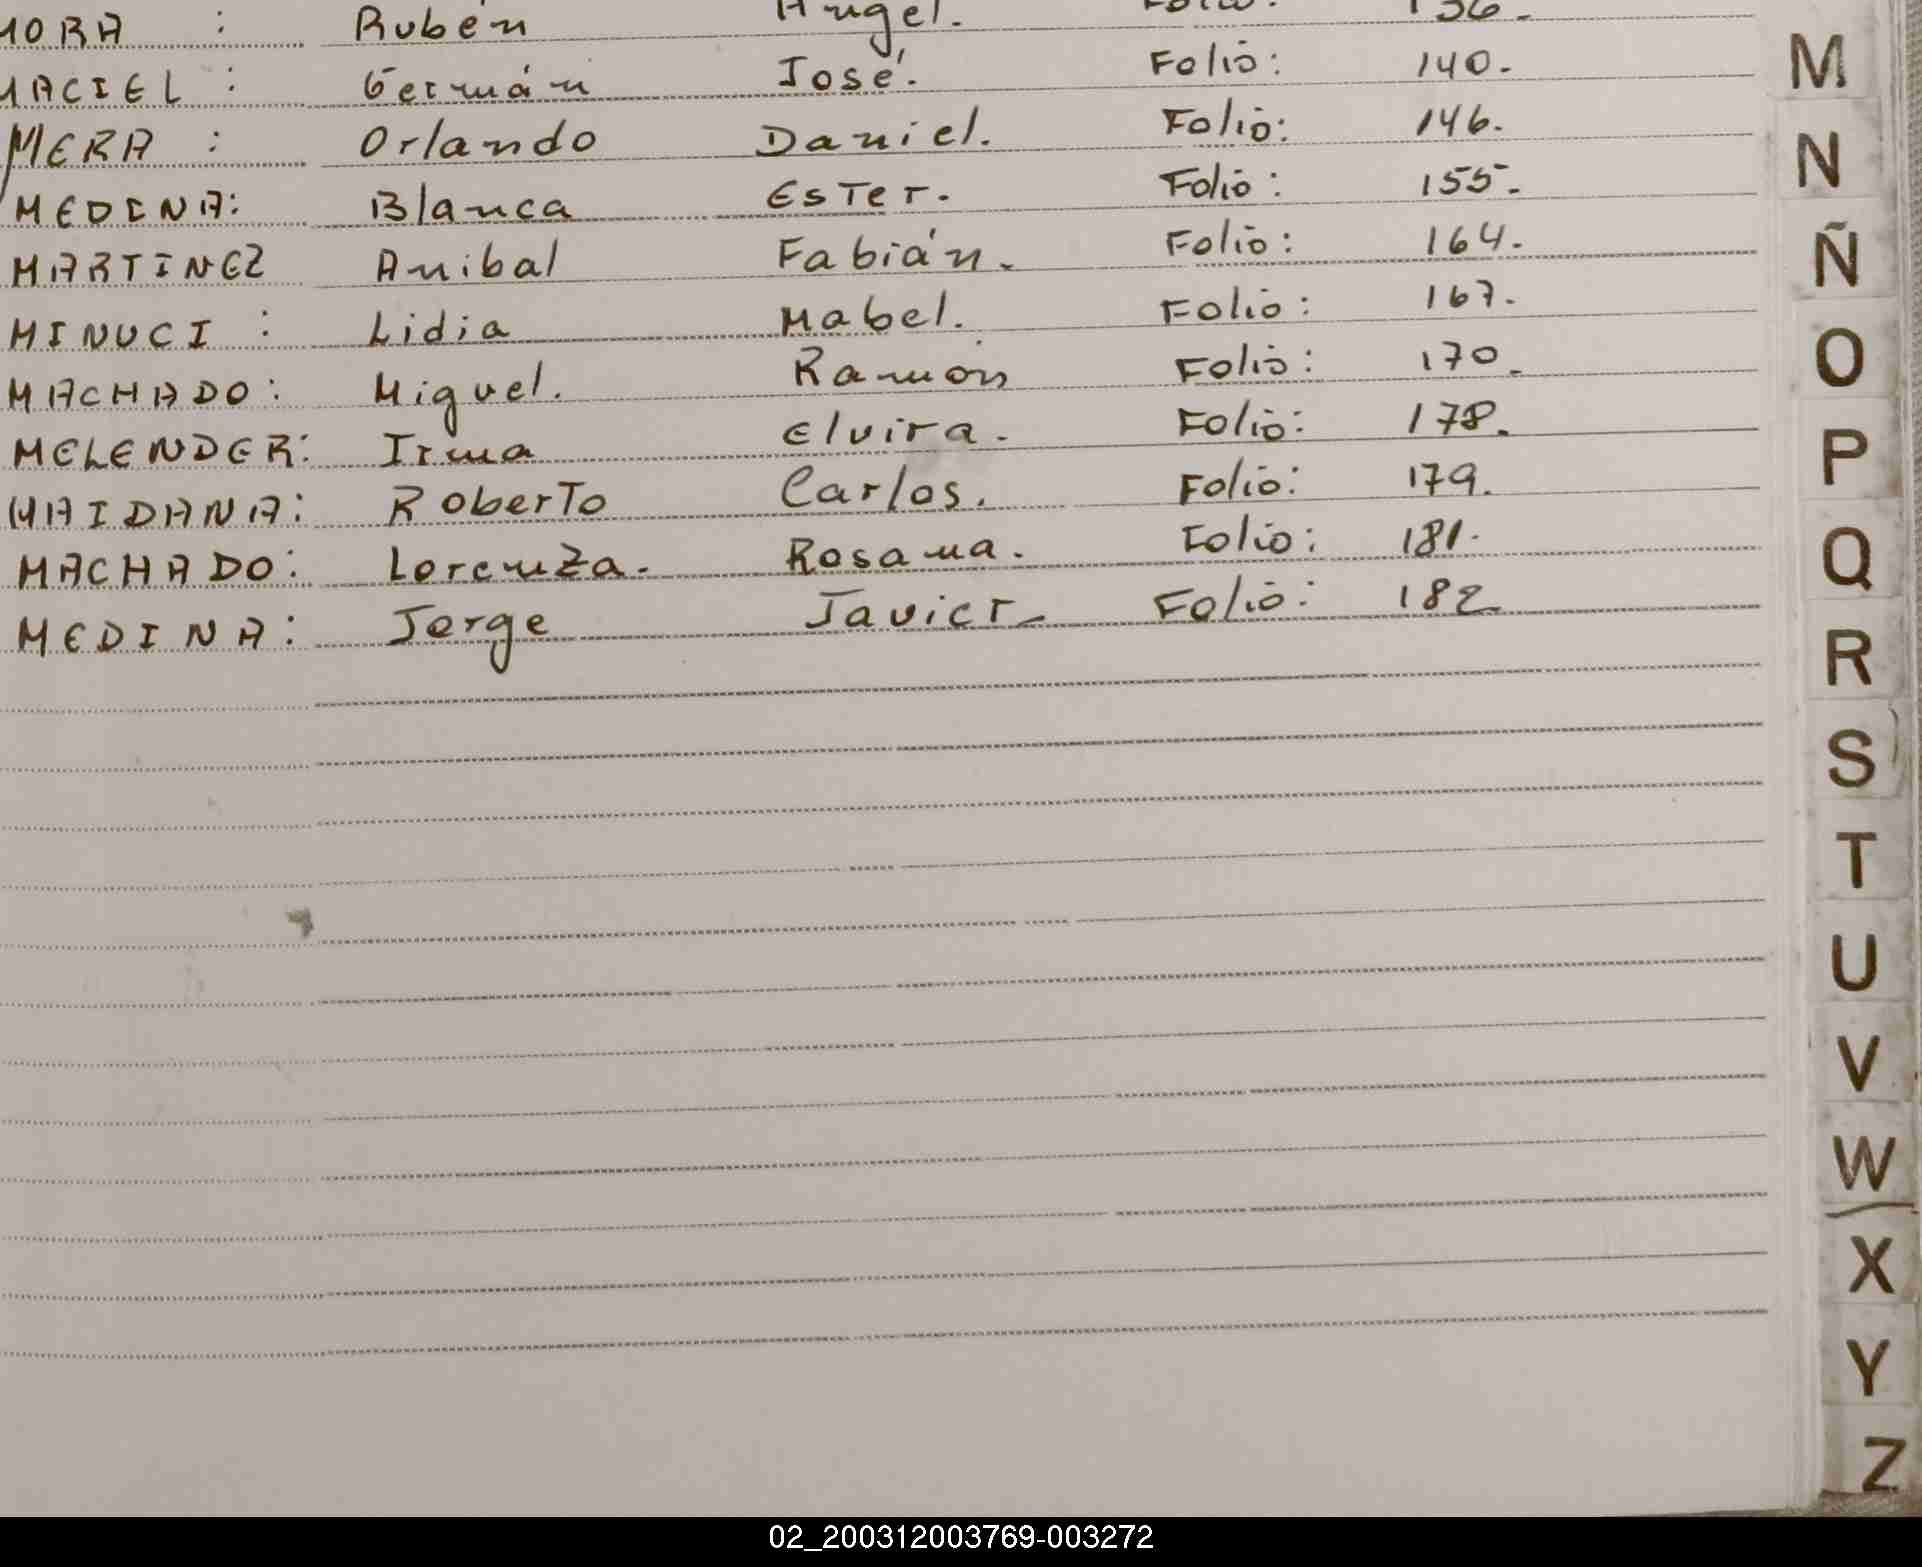 MORA : Rubén Angel. Folio: 136.
MACIEL : Germán José. Folio: 140.
MERA : Orlando Daniel. Folio: 146.
MEDINA: Blanca Ester. Folio: 155.
MARTINEZ Anibal Fabián. Folio: 164.
MINUCI : Lidia Mabel. Folio: 167.
MACHADO: Miguel. Ramón Folio: 170.
MELENDER: Irma Elvira. Folio: 178.
MAIDANA: Roberto Carlos. Folio: 179.
MACHADO: Lorenza. Rosana. Folio: 181.
MEDINA: Jorge Javier Folio: 182.
M
N
Ñ
O
P
Q
R
S
T
U
V
W
X
Y
Z
02_200312003769-003272